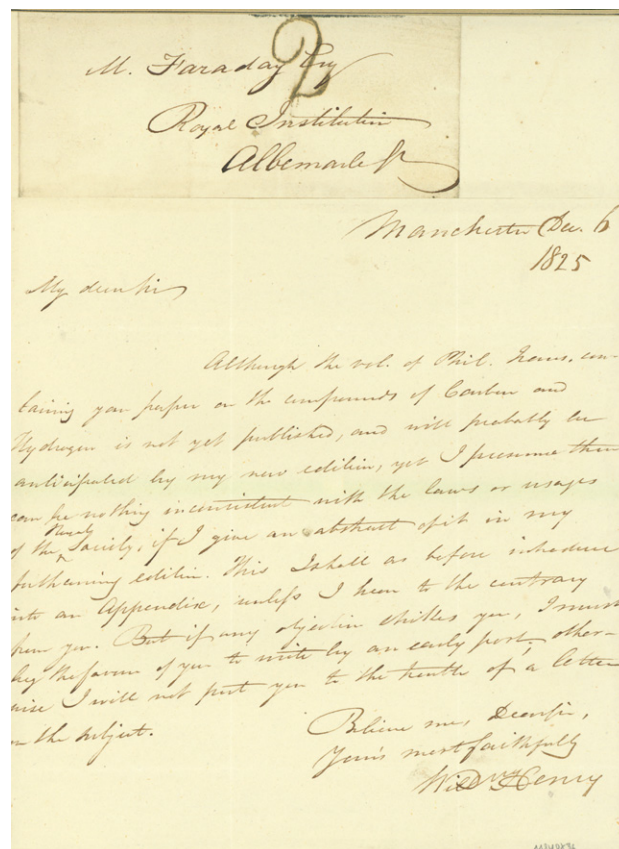 M. Faraday Esq
2
Royal Institution
Albemarle St
Manchester Dec. 6
1825
My dear Sir
Although the vol. of Phil. Trans. con-
taining your paper on the compounds of Carbon and
Hydrogen is not yet published, and will probably be
anticipated by my new edition, yet I presume there
can be nothing inconsistent with the laws or usages
of the Royal Society, if I give an abstract of it in my
forthcoming edition. This I shall as before introduce
into an Appendix, unless I hear to the contrary
from you. But if any objection strikes you, I must
beg the favour of you to write by an early post, other-
wise I will not put you to the trouble of a letter
on the subject.
Believe me, Dear Sir,
Yours most faithfully
Wm Henry